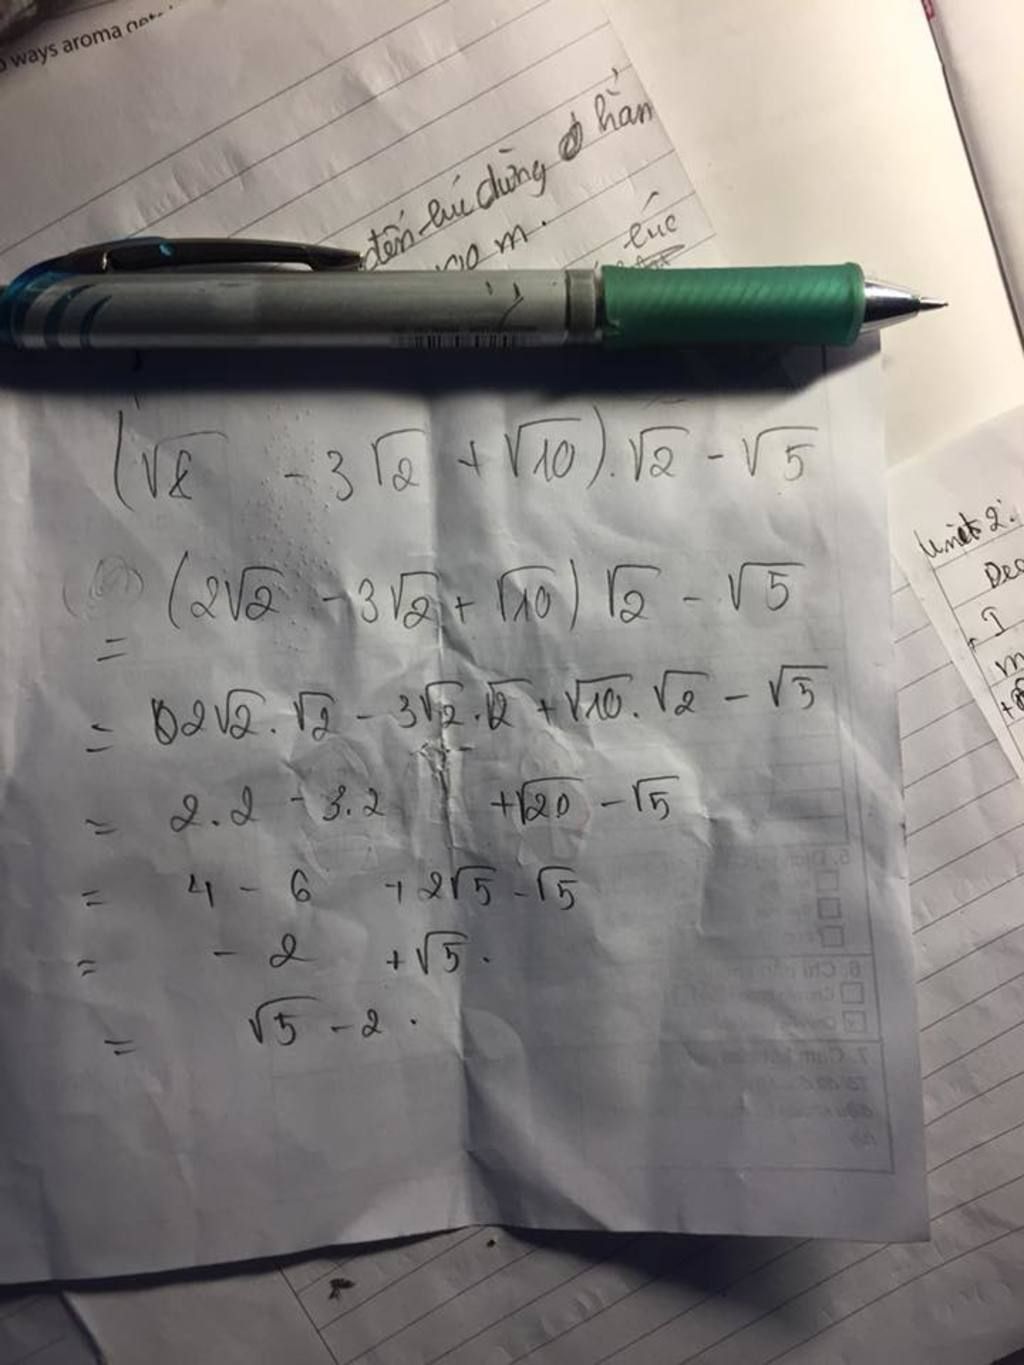 ways aroma
đến lúc dừng hàn
m.
lúc
(√8 - 3√2 + √10).√2 - √5
= (2√2 - 3√2 + √10) √2 - √5
= 2√2.√2 - 3√2.√2 + √10.√2 - √5
= 2.2 - 3.2 + √20 - √5
= 4 - 6 + 2√5 - √5
= - 2 + √5.
= √5 - 2.
Unit 2:
Dec
I
m